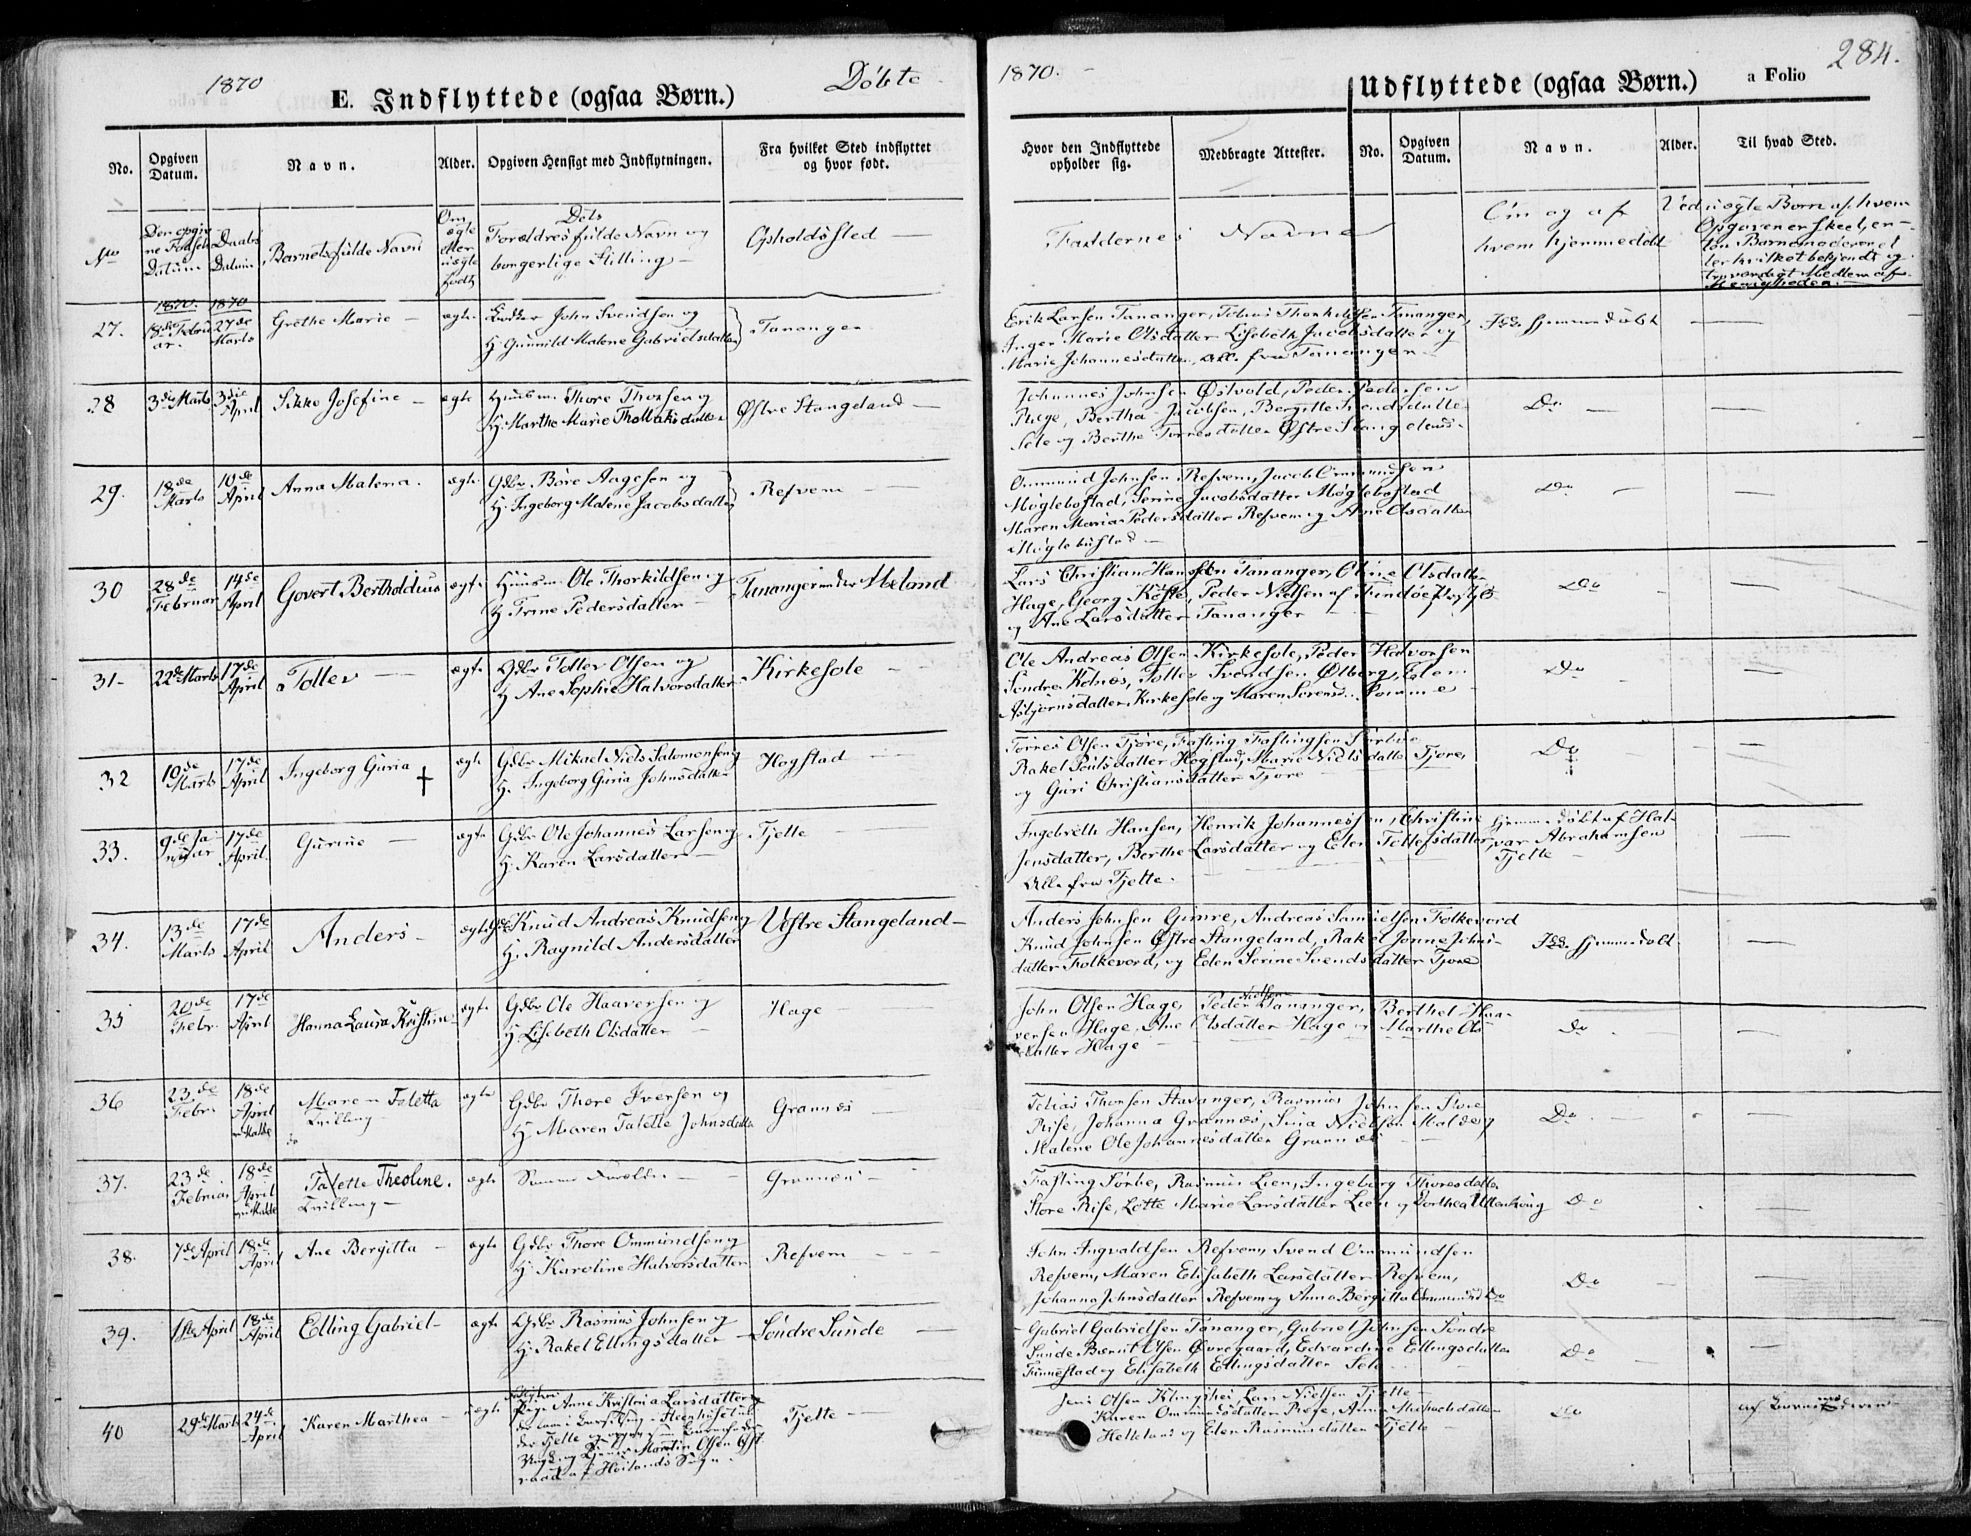 1870
E. Indflyttede (ogsaa Børn.)
Döbte
No.
Opgiven Datum.
Navn.
Alder.
Opgiven Hensigt med Indflytningen.
Fra hvilket Sted indflyttet og hvor født.
No
Den opgivne Fødsels Datum
Daabs Datum
Barnets fulde Navn
Om ægte eller uægte født
Døbtes
Forældres fulde Navn og
borgerlige Stilling
Opholdssted
27.
1870. 18de Februar.
1870 27de Marts
Grethe Marie
ægte
John Svendsen og
H. Gunnild Malene Gabrielsdatter
Tananger
28
3die Marts
3die April
Sikke Josefine
ægte
Huusm. Thore Thorsen og
H. Marthe Marie Thollaksdatter
Østre Stangeland
29.
18de Marts
10de April
Anna Malena.
ægte
Gdbr Børe Aagesen og
H. Ingeborg Malene Jacobsdatter
Refvem
30
28de Februar
14de April
Govert Bertholdius
ægte
Huusm. Ole Thorkildsen og
H Trine Pedersdatter
Tananger under Meland
31.
22de Marts
17de April
Tollev
ægte
Gdbr Tollev Olsen og
H Ane Sophie Halvorsdatter
Kirkesole
32
10de Marts
17de April
Ingeborg Guria †
ægte
Gdbr Mikael Niels Salomonsen og
H. Ingeborg Guria Johnsdatter
Hogstad
33.
9de Januar
17de April.
Gurine
ægte
Gdbr Ole Johannes Larsen og
H. Karen Larsdatter
Tjelte
34.
13de Marts
17de April
Anders
ægte
Gdbr Knud Andreas Knudsen og
H. Ragnild Andersdatter
Vestre Stangeland
35
20de Febr.
17de April
Hanna Laura Kristine
ægte
Gdbr Ole Haaversen og
H Lisbeth Olsdatter
Hage
36
23de Febr.
18de April
Maren Taletta
Tvilling
ægte
Gdbr Thore Iversen og
H. Maren Talette Johnsdatter
Grannes
37.
23de Februar
18de April
Talette Theoline.
Tvilling
ægte
Samme Forældre
Grannes
38.
7de April
18de April
Ane Bergitta
ægte
Gdbr Thore Ommundsen og
H. Karoline Halvorsdatter
Refvem
39.
1ste April
18de April
Elling Gabriel
ægte
Gdbr Rasmus Johnsen og
H. Rakel Ellingsdatter
Søndre Sunde
40
29de Marts
24de April
Karen Marthea
uægte
Pige Anne Kristina Larsdatter
Tjelte
Martin Olsen
af Høilands Sogn.
1870.
Udflyttede (ogsaa Børn.)
a Folio
284.
Hvor den Indflyttede opholder sig.
Medbragte Attester.
No.
Opgiven Datum.
Navn.
Alder.
Til hvad Sted.
Faddernes Navne
Om og af
hvem hjemmedøbt
Ved uægte Børn af hvem
Opgaven er skeet, en-
ten Barnemoderen el
ler hvilket bekjendt og
troværdigt Medlem af
Menigheden.
Erik Larsen Tananger, Tobias Thorkildsen Tananger,
Inger Marie Olsdatter Lisebeth Jacobsdatter og
Marie Johannesdatter, alle fra Tananger
Ikke hjemmedøbt
Johannes Johnsen Østvold, Peder Pedersen
Rege, Bertha Jacobsen, Bergitte Svendsdatter
Sole og Berthe Torresdatter Østre Stangeland.
Do
Ommund Johnsen Refvem, Jacob Ommundsen
Møglebostad, Serine Jacobsdatter Møglebostad
Maren Maria Pedersdatter Refvem og Ane Olsdatter
Møglebustad
Do
Lars Christian Hansen Tananger, Oline Olsdatter
Hage, Georg Köster, Peder Nielsen af
og Ane Larsdatter Tananger
Do
Ole Andreas Olsen Kirkesole, Peder Halvorsen
Søndre Kolnes, Tollev Svendsen Ølberg, Elen
Asbjørnsdatter Kirkesole og Maren
Do
Torres Olsen Tjøre, Fasting Fastingsen Sørbø
Rakel Poulsdatter Hogstad, Marie Nielsdatter Tjore,
og Guri Christiansdatter Tjore
Do
Ingebreth Hansen, Henrik Johannessen, Christine
Jensdatter, Berthe Larsdatter og Elen Tollefsdatter,
Alle fra Tjelte.
Hjemmedøbt af Hal-
var Abrahamsen
Tjelte
Anders Johnsen Gimre, Andreas Samuelsen Folkevord
Knud Johnsen Østre Stangeland, Rakel Jonne Johns-
datter Folkevord, og Elen Serine Svendsdatter Tjore
Ikke hjemmedøbt
John Olsen Hage, Peder Nielsen Tananger, Berthel Haa-
versen Hage, Ane Olsdatter Hage og Marthe Ols
datter Hage
Do
Tobias Thorsen Stavanger, Rasmus Johnsen Store
Rise, Johanna Grannes, Sina Nielsen Malde og
Malene Ole Johannesdatter Grannes
Do
Fasting Sørbø, Rasmus Lien, Ingeborg Thoresdatter
Store Rise, Lotte Marie Larsdatter Lien og Dorthea Ullenhaug
Do
John Ingvaldsen Refvem, Svend Ommundsen
Refvem, Maren Elisabeth Larsdatter Refvem,
Johanna Johnsdatter Refvem og Anna Bergitta Ommundsd Do
Do
Gabriel Gabrielsen Tananger, Gabriel Johnsen Søndre
Sunde Berent Olsen Øvregaard, Edvardine Ellingsdatter
Finnestad og Elisabeth Ellingsdatter Sole
Do
Jens Olsen Lars Nielsen Tjelte
Karen Ommundsdatter Rege, Anne
Helleland og Elen Rasmusdatter Tjelte
Do
af Barnemoderen